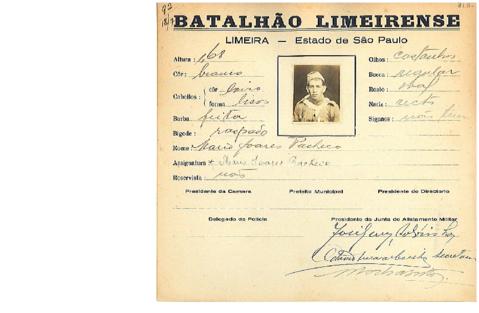 92
BATALHÃO LIMEIRENSE
LIMEIRA — Estado de São Paulo
Altura: 1,68
Olhos: castanhos
Côr: branco
Bocca: regular
Cabellos: côr
Rosto: oval
forma lisos
Nariz: recto
Barba feita
Signaes: não tem
Bigode: raspado
Nome: Mario Soares Pacheco
Assignatura Mario Soares Pacheco
Reservista não
Presidente da Camara Prefeito Municipal Presidente do Directorio
Delegado da Policia Presidente da Junta de Alistamento Militar